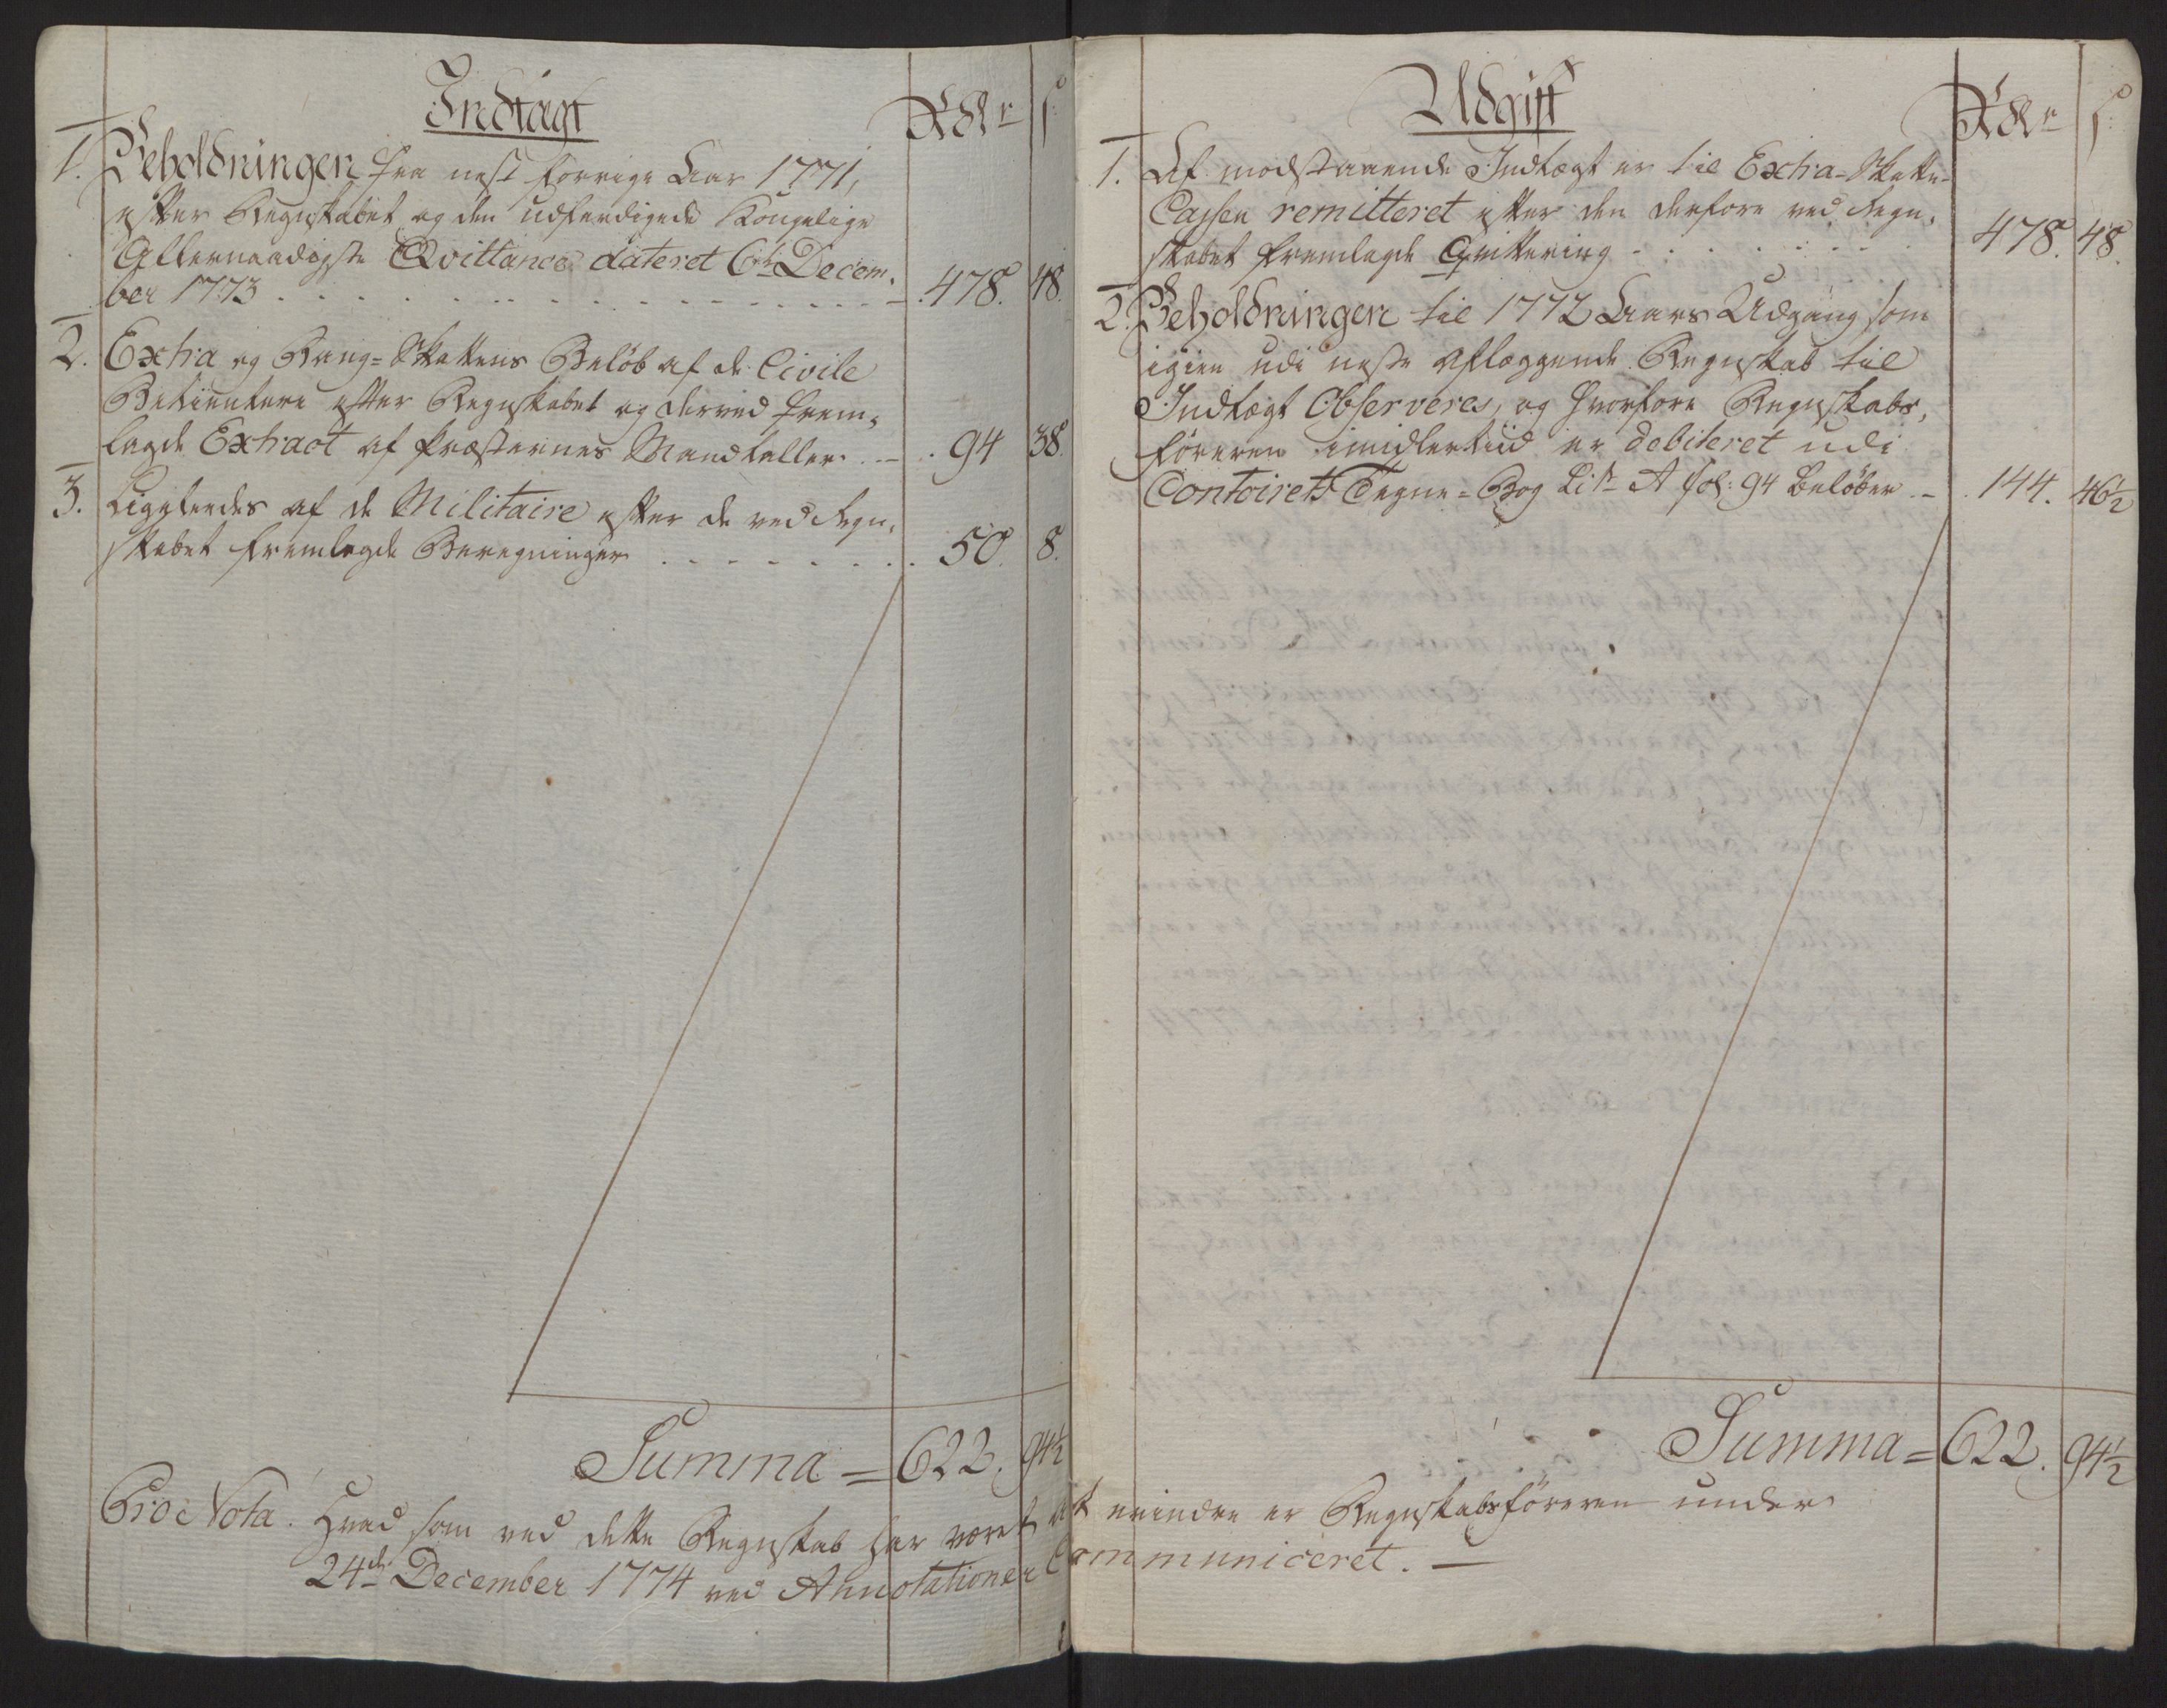 Indtægt
Rdlr
s:
1. Beholdningen fra nest forrige Aar 1771,
efter Regnskabet og den udferdigede Kongelige
Allernaadigste Qvittance dateret 6te Decem-
ber 1773 478. 48.
2. Extra og Rang-Skattens Beløb af de Civile
Betientere efter Regnskabet og derved frem-
lagde Extract af Præsternes Mandtaller 94 38.
3. Ligeledes af de Militaire efter de ved Regn-
skabet fremlagde Beregninger 50. 8.
Summa = 622. 94½
Udgift
Rdlr
s:
1. Af modstaaende Indtægt er til Extra-Skatte-
Cassen remitteret efter den derfore ved Regn-
skabet fremlagde Qvittering 478. 48.
2. Beholdningen til 1772 Aars Udgang som
igien udi neste aflæggende Regnskab til
Indtægt Observeres, og hvorfore Regnskabs-
føreren imidlertiid er debiteret udi
Contoirets Tegne-Bog Litr A fol: 94 beløber 144. 46½
Summa = 622. 94½
Pro Nota. Hvad som ved dette Regnskab har været at erindre er Regnskabsføreren under
24de December 1774 ved Annotationer Communiceret.